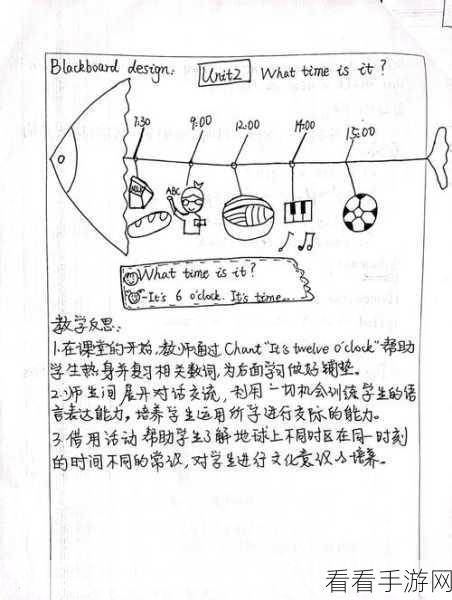 Blackboard design: Unit2 What time is it?
7:30 9:00 12:00 14:00 15:00
MILK ABC
What time is it?
-It's 6 o'clock. It's time...
教学反思:
1.在课堂的开始,教师通过Chant"It's twelve o'clock"帮助
学生热身并复习相关数词,为后面学习做好铺垫。
2.师生间展开对话交流,利用一切机会训练学生的语
言表达能力。培养学生运用所学进行交际的能力。
3.借用活动帮助学生了解地球上不同时区在同一时刻
的时间不同的常识,对学生进行文化意识的培养。
看看手游网